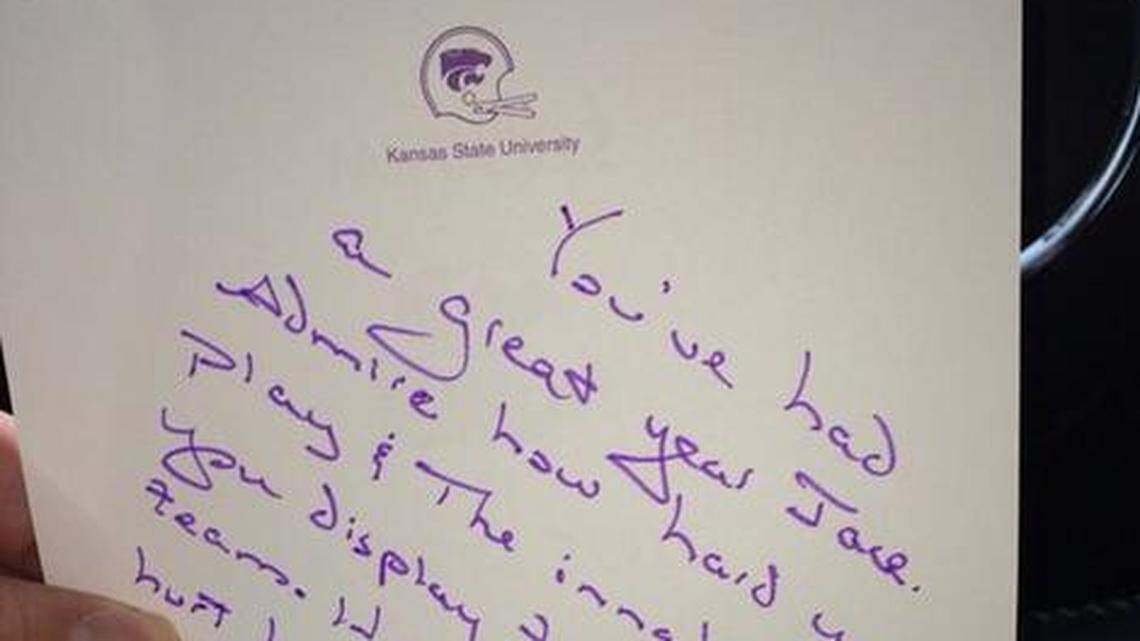 Kansas State University
You've had
a great year Jace.
Admire how hard
Play & The
you display
team.
hurt